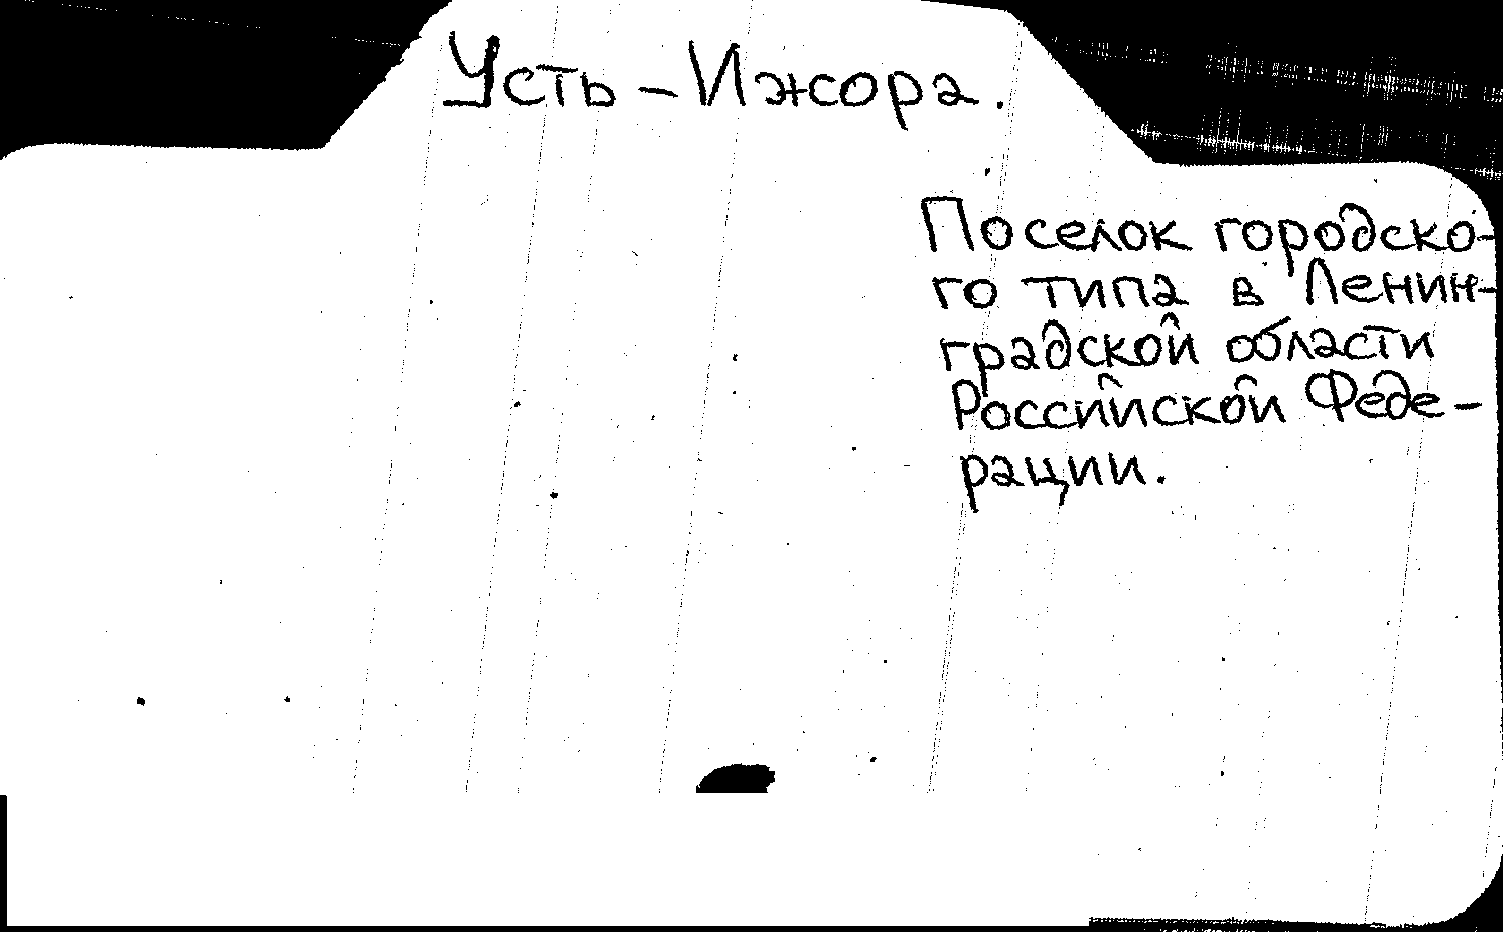 Усть-Ижора.
Поселок городско-
го типа в Ленин-
градской области
Российской Феде-
рации.